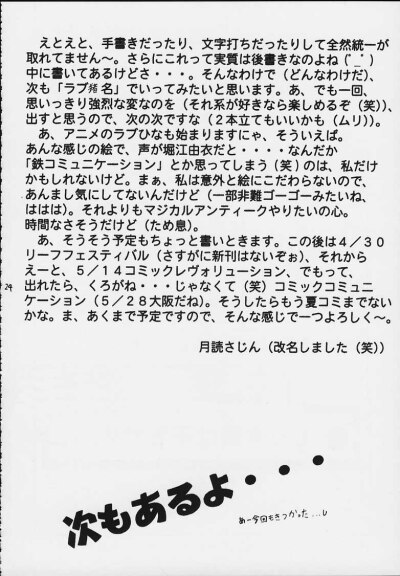 えとえと、手書きだったり、文字打ちだったりして全然統一が
取れてません〜。さらにこれって実質は後書きなのよね(ﾟ_ﾟ)
中に書いてあるけどさ・・・。そんなわけで(どんなわけだ)、
次も「ラブ 名」でいってみたいと思います。あ、でも一回、
思いっきり強烈な変なのを(それ系が好きなら楽しめるぞ(笑))、
出すと思うので、次の次ですな(2本立てもいいかも(ムリ))。
あ、アニメのラブひなも始まりますにゃ、そういえば。
あんな感じの絵で、声が堀江由衣だと・・・・なんだか
「鉄コミュニケーション」とか思ってしまう(笑)のは、私だけ
かもしれないけど。まぁ、私は意外と絵にこだわらないので、
あんまし気にしてないんだけど(一部非難ゴーゴーみたいね、
ははは)。それよりもマジカルアンティークやりたいの心。
時間なさそうだけど(ため息)。
あ、そうそう予定もちょっと書いときます。この後は4/30
リーフフェスティバル(さすがに新刊はないぞぉ)、それから
えーと、5/14コミックレヴォリューション、でもって、
出れたら、くろがね・・・じゃなくて(笑)コミックコミュニ
ケーション(5/28大阪だね)。そうしたらもう夏コミまでない
かな。ま、あくまで予定ですので、そんな感じで一つよろしく〜。
月読さじん(改名しました(笑))
24
次もあるよ・・・
めー今回もきつかった...し